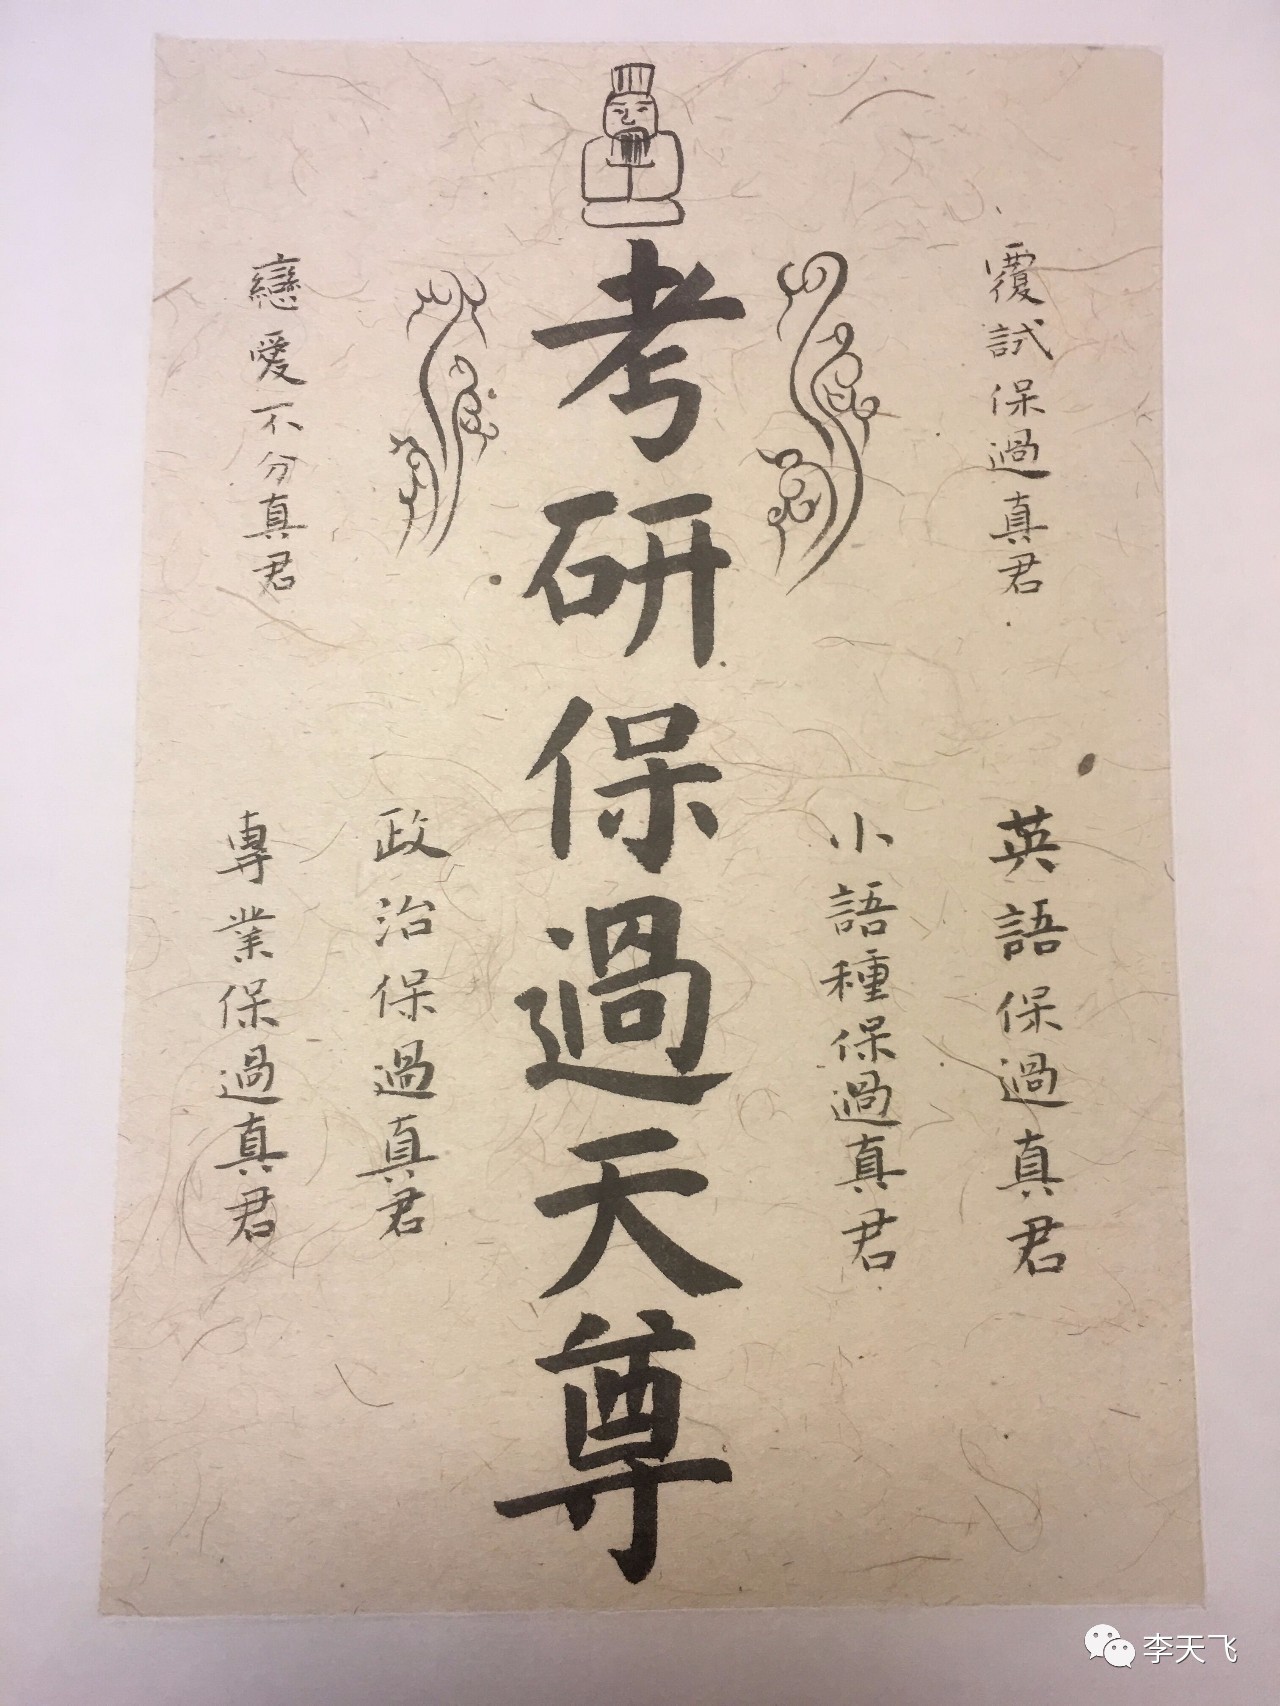 覆試保過真君
英語保過真君
小語種保過真君
考研保過天尊
政治保過真君
戀愛不分真君
專業保過真君
李天飞